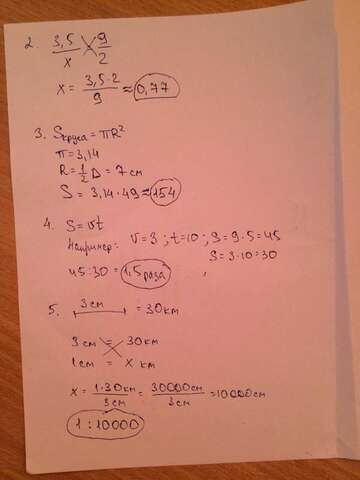 2. 3,5/x 9/2
x = 3,5·2/9 ≈ 0,77
3. Sкруга = πR²
π = 3,14
R = 1/2 D = 7 см
S = 3,14·49 ≈ 154
4. S = vt
Например: V = 3 ; t = 10 ; S = 9·5 = 45
S = 3·10 = 30
45:30 = 1,5 раза
5. 3 см = 30 км
3 см = 30 км
1 см = x км
x = 1·30 км/3 см = 30000 см/3 см = 10000 см
1 : 10000